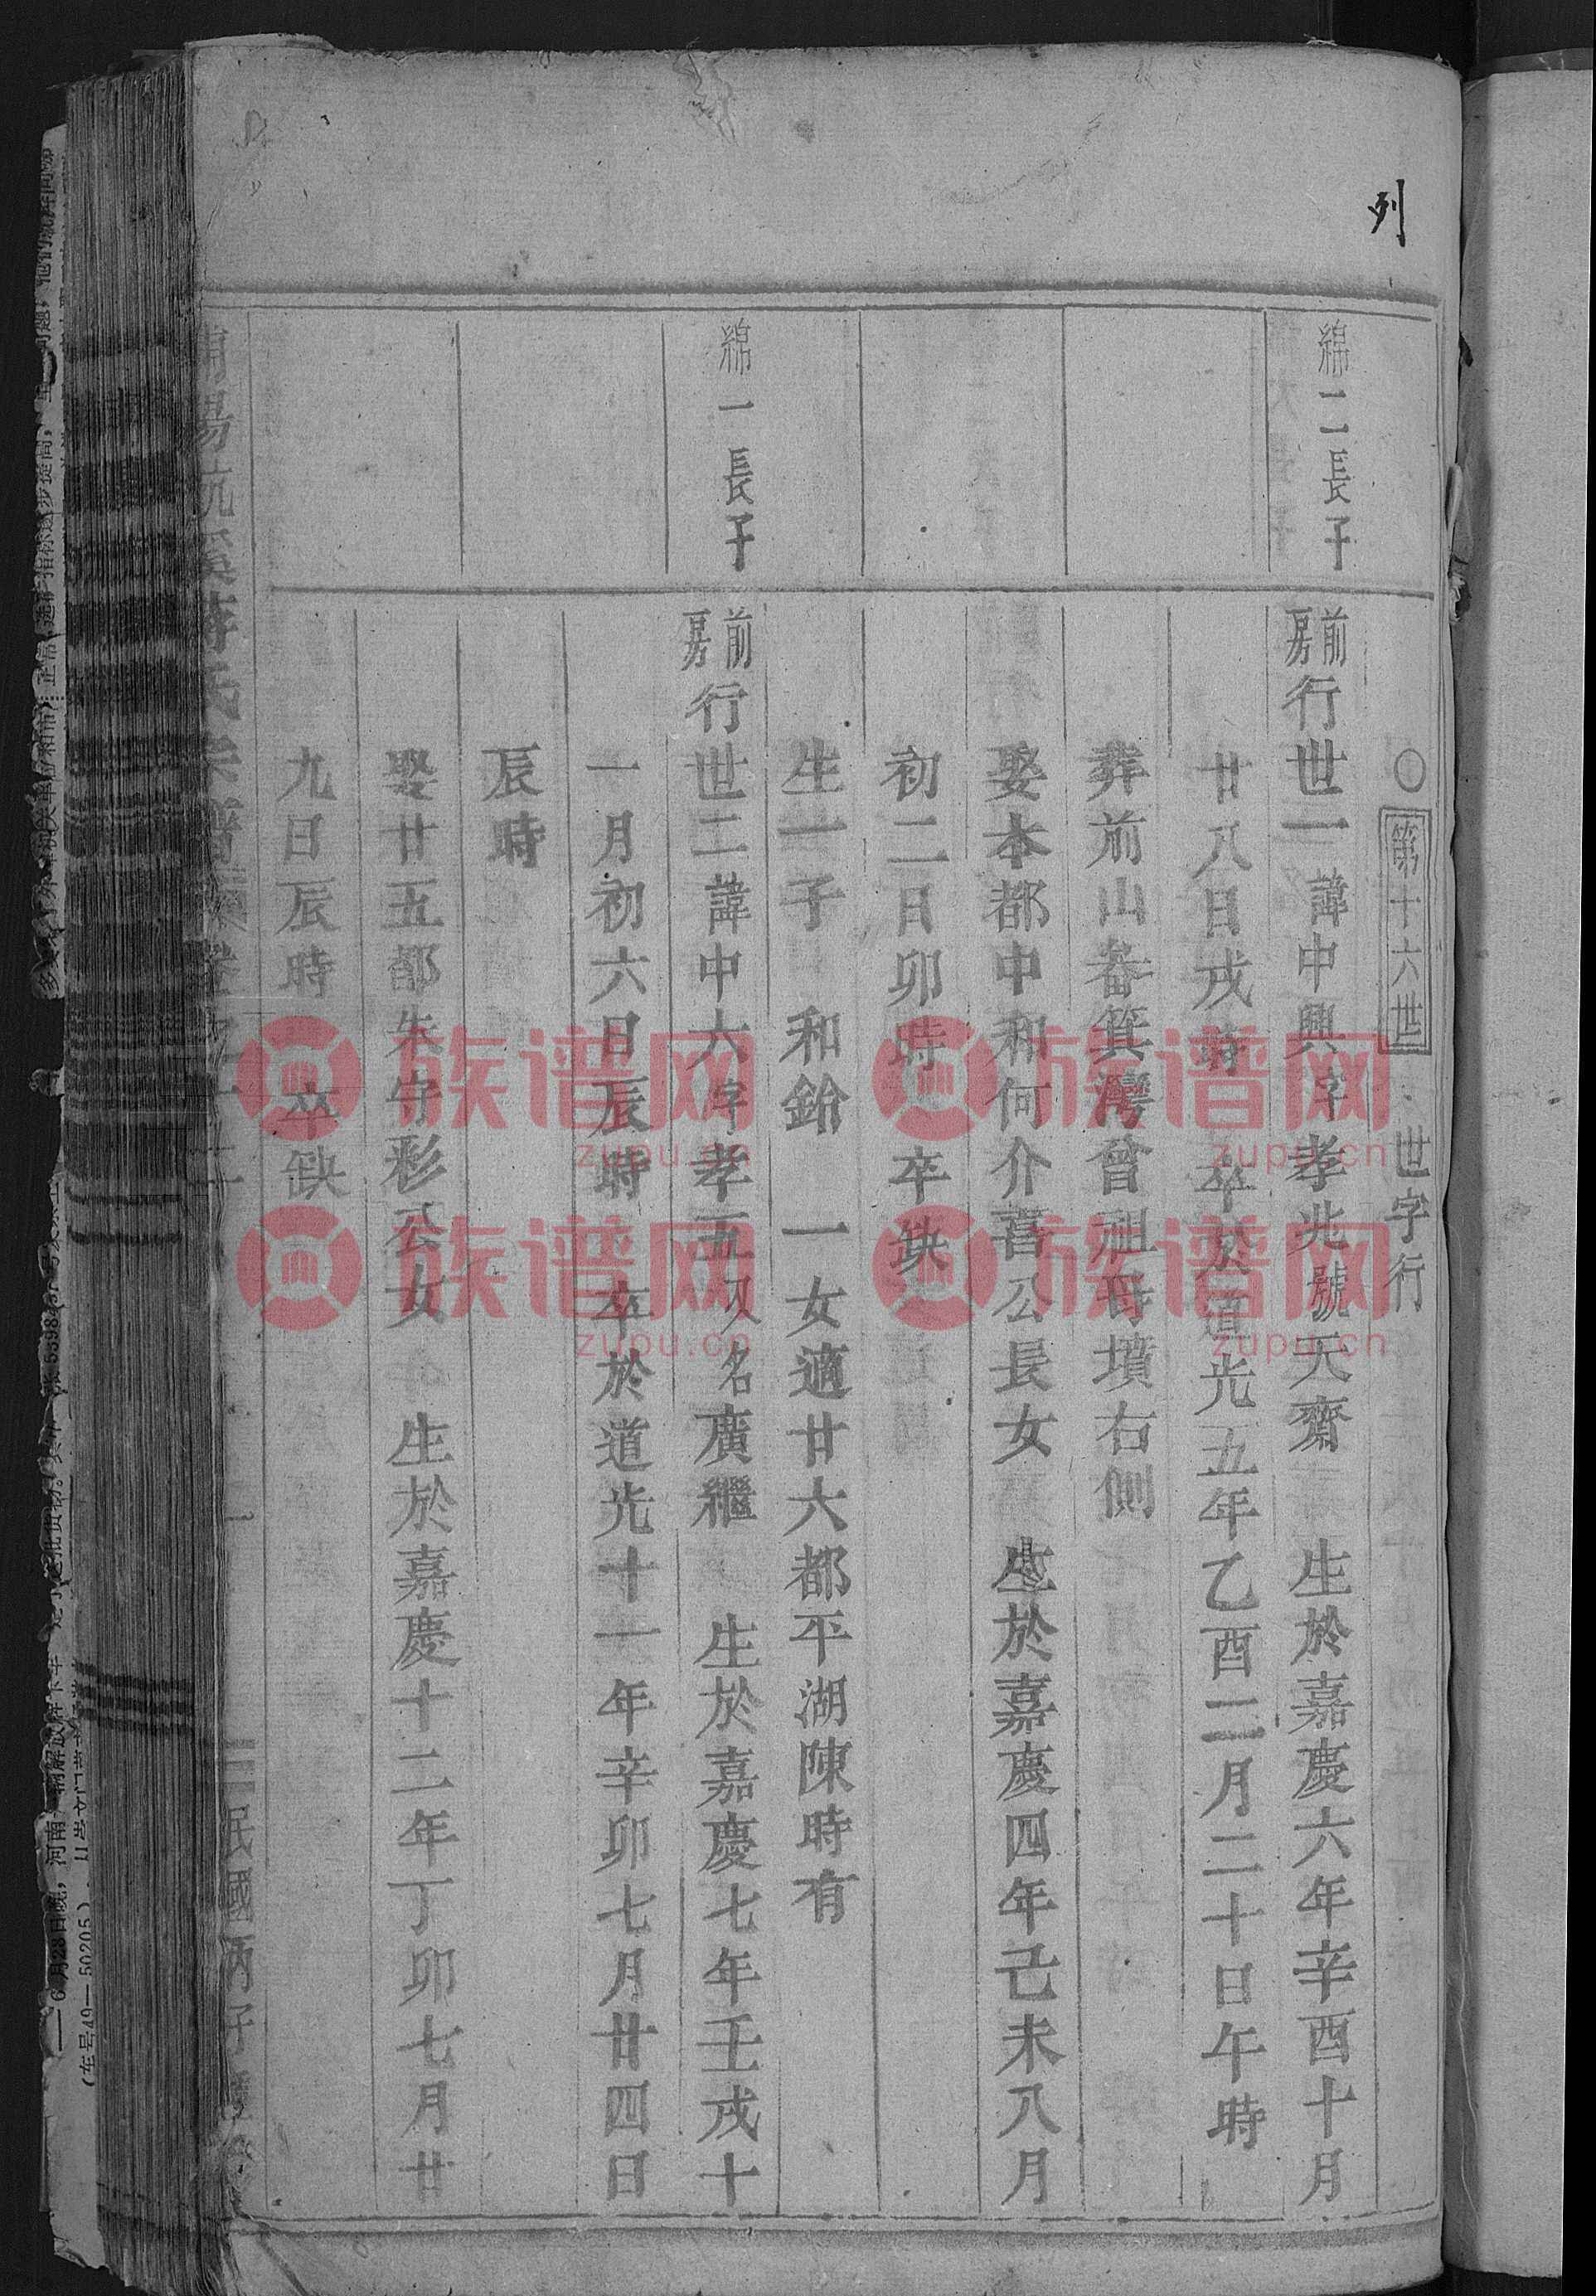 列
○第十六世 世字行
綿二長子
前房行世一諱中興字孝兆號天齋 生於嘉慶六年辛酉十月
廿八日戌時 卒於道光五年乙酉二月二十日午時
葬前山畚箕灣曾祖母墳右側
娶本都中和何介喜公長女 生於嘉慶四年己未八月
初二日卯時 卒缺
生一子 和鈴 一女適廿六都平湖陳時有
綿一長子
前房行世二諱中六字孝五又名廣繼 生於嘉慶七年壬戌十
一月初六日辰時 卒於道光十一年辛卯七月廿四日
辰時
娶廿五都朱守彩公女 生於嘉慶十二年丁卯七月廿
九日辰時 卒缺
民國丙子
族谱网
zupu.cn
族谱网
zupu.cn
族谱网
zupu.cn
族谱网
zupu.cn